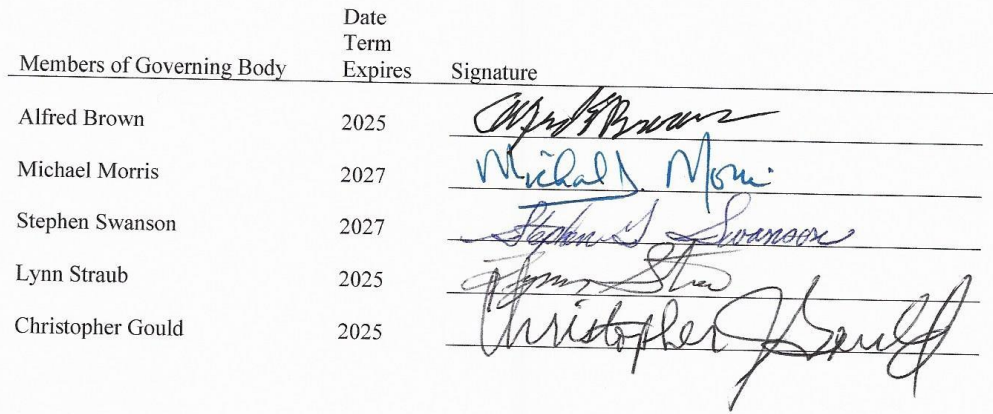 Date
Term
Members of Governing Body Expires Signature
Alfred Brown 2025 Alfred Brown
Michael Morris 2027 Michael D. Morris
Stephen Swanson 2027 Stephen G Swanson
Lynn Straub 2025 Lynn
Christopher Gould 2025 Christopher J Gould